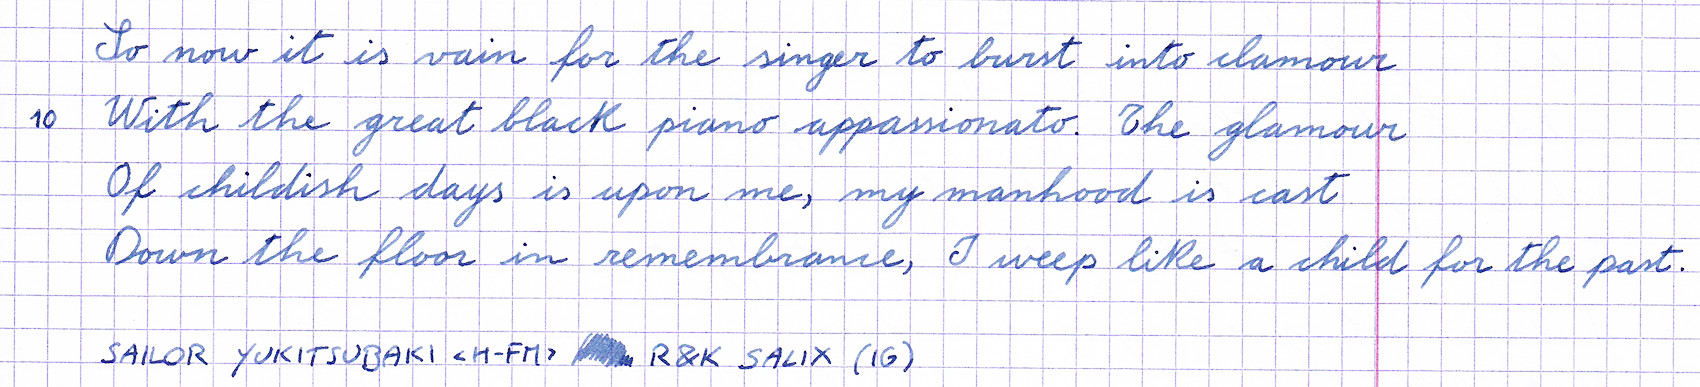 So now it is vain for the singer to burst into clamour
10 With the great black piano appassionato. The glamour
Of childish days is upon me, my manhood is cast
Down the floor in remembrance, I weep like a child for the past.
SAILOR YUKITSUBAKI <H-FM> R&K SALIX (IG)